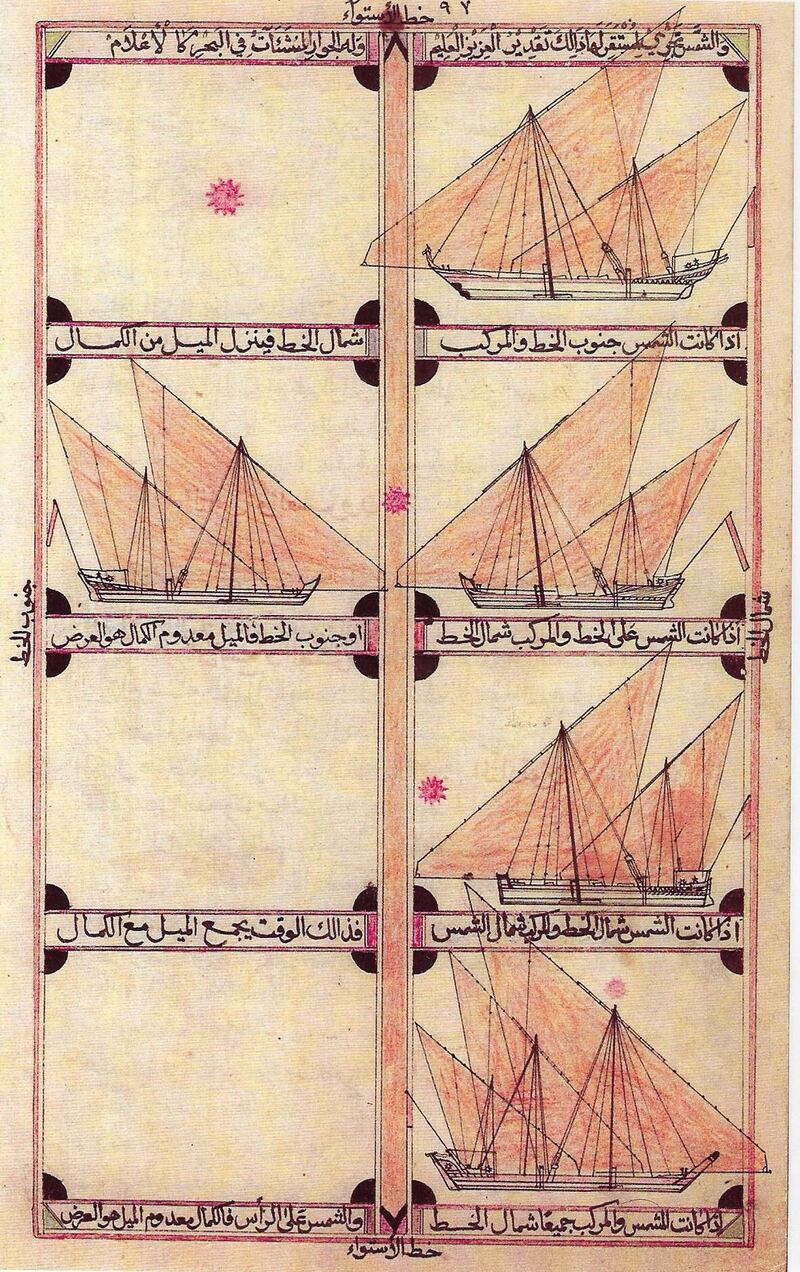 ٩٧
خط الأستواء
والشمس تجري لمستقر لها ذالك تقدير العزيز العليم
وله الجوار المنشئات في البحر كا لأعلام
اذا كانت الشمس جنوب الخط والمركب
شمال الخط فينزل الميل من الكمال
شمال الخط
جنوب الخط
اذا كانت الشمس على الخط والمركب شمال الخط
او جنوب الخط فالميل معدوم الكمال هو العرض
اذا كانت الشمس شمال الخط والمركب شمال الشمس
فذالك الوقت يجمع الميل مع الكمال
اذا كانت الشمس والمركب جميعًا شمال الخط
والشمس على الرأس فالكمال معدوم الميل هو العرض
خط الأستواء